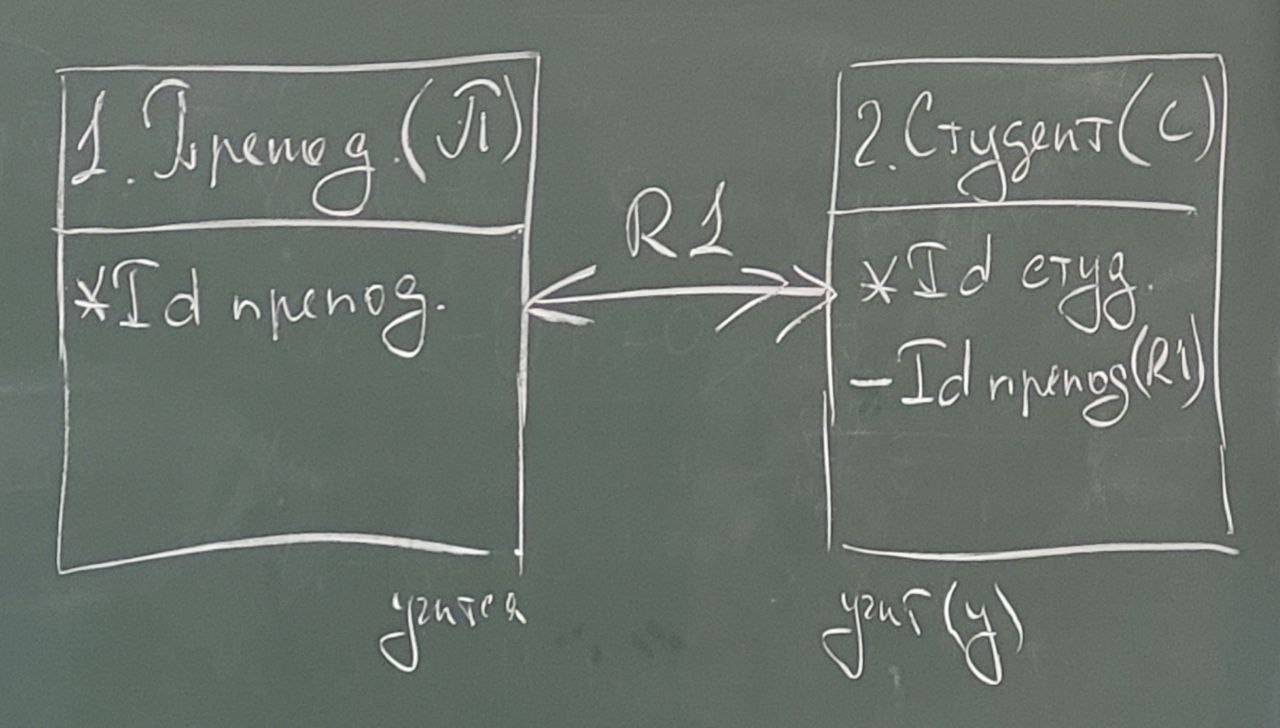 1. Препод. (П)
*Id препод.
R1
2. Студент (С)
*Id студ.
- Id препод (R1)
учится
учит (у)